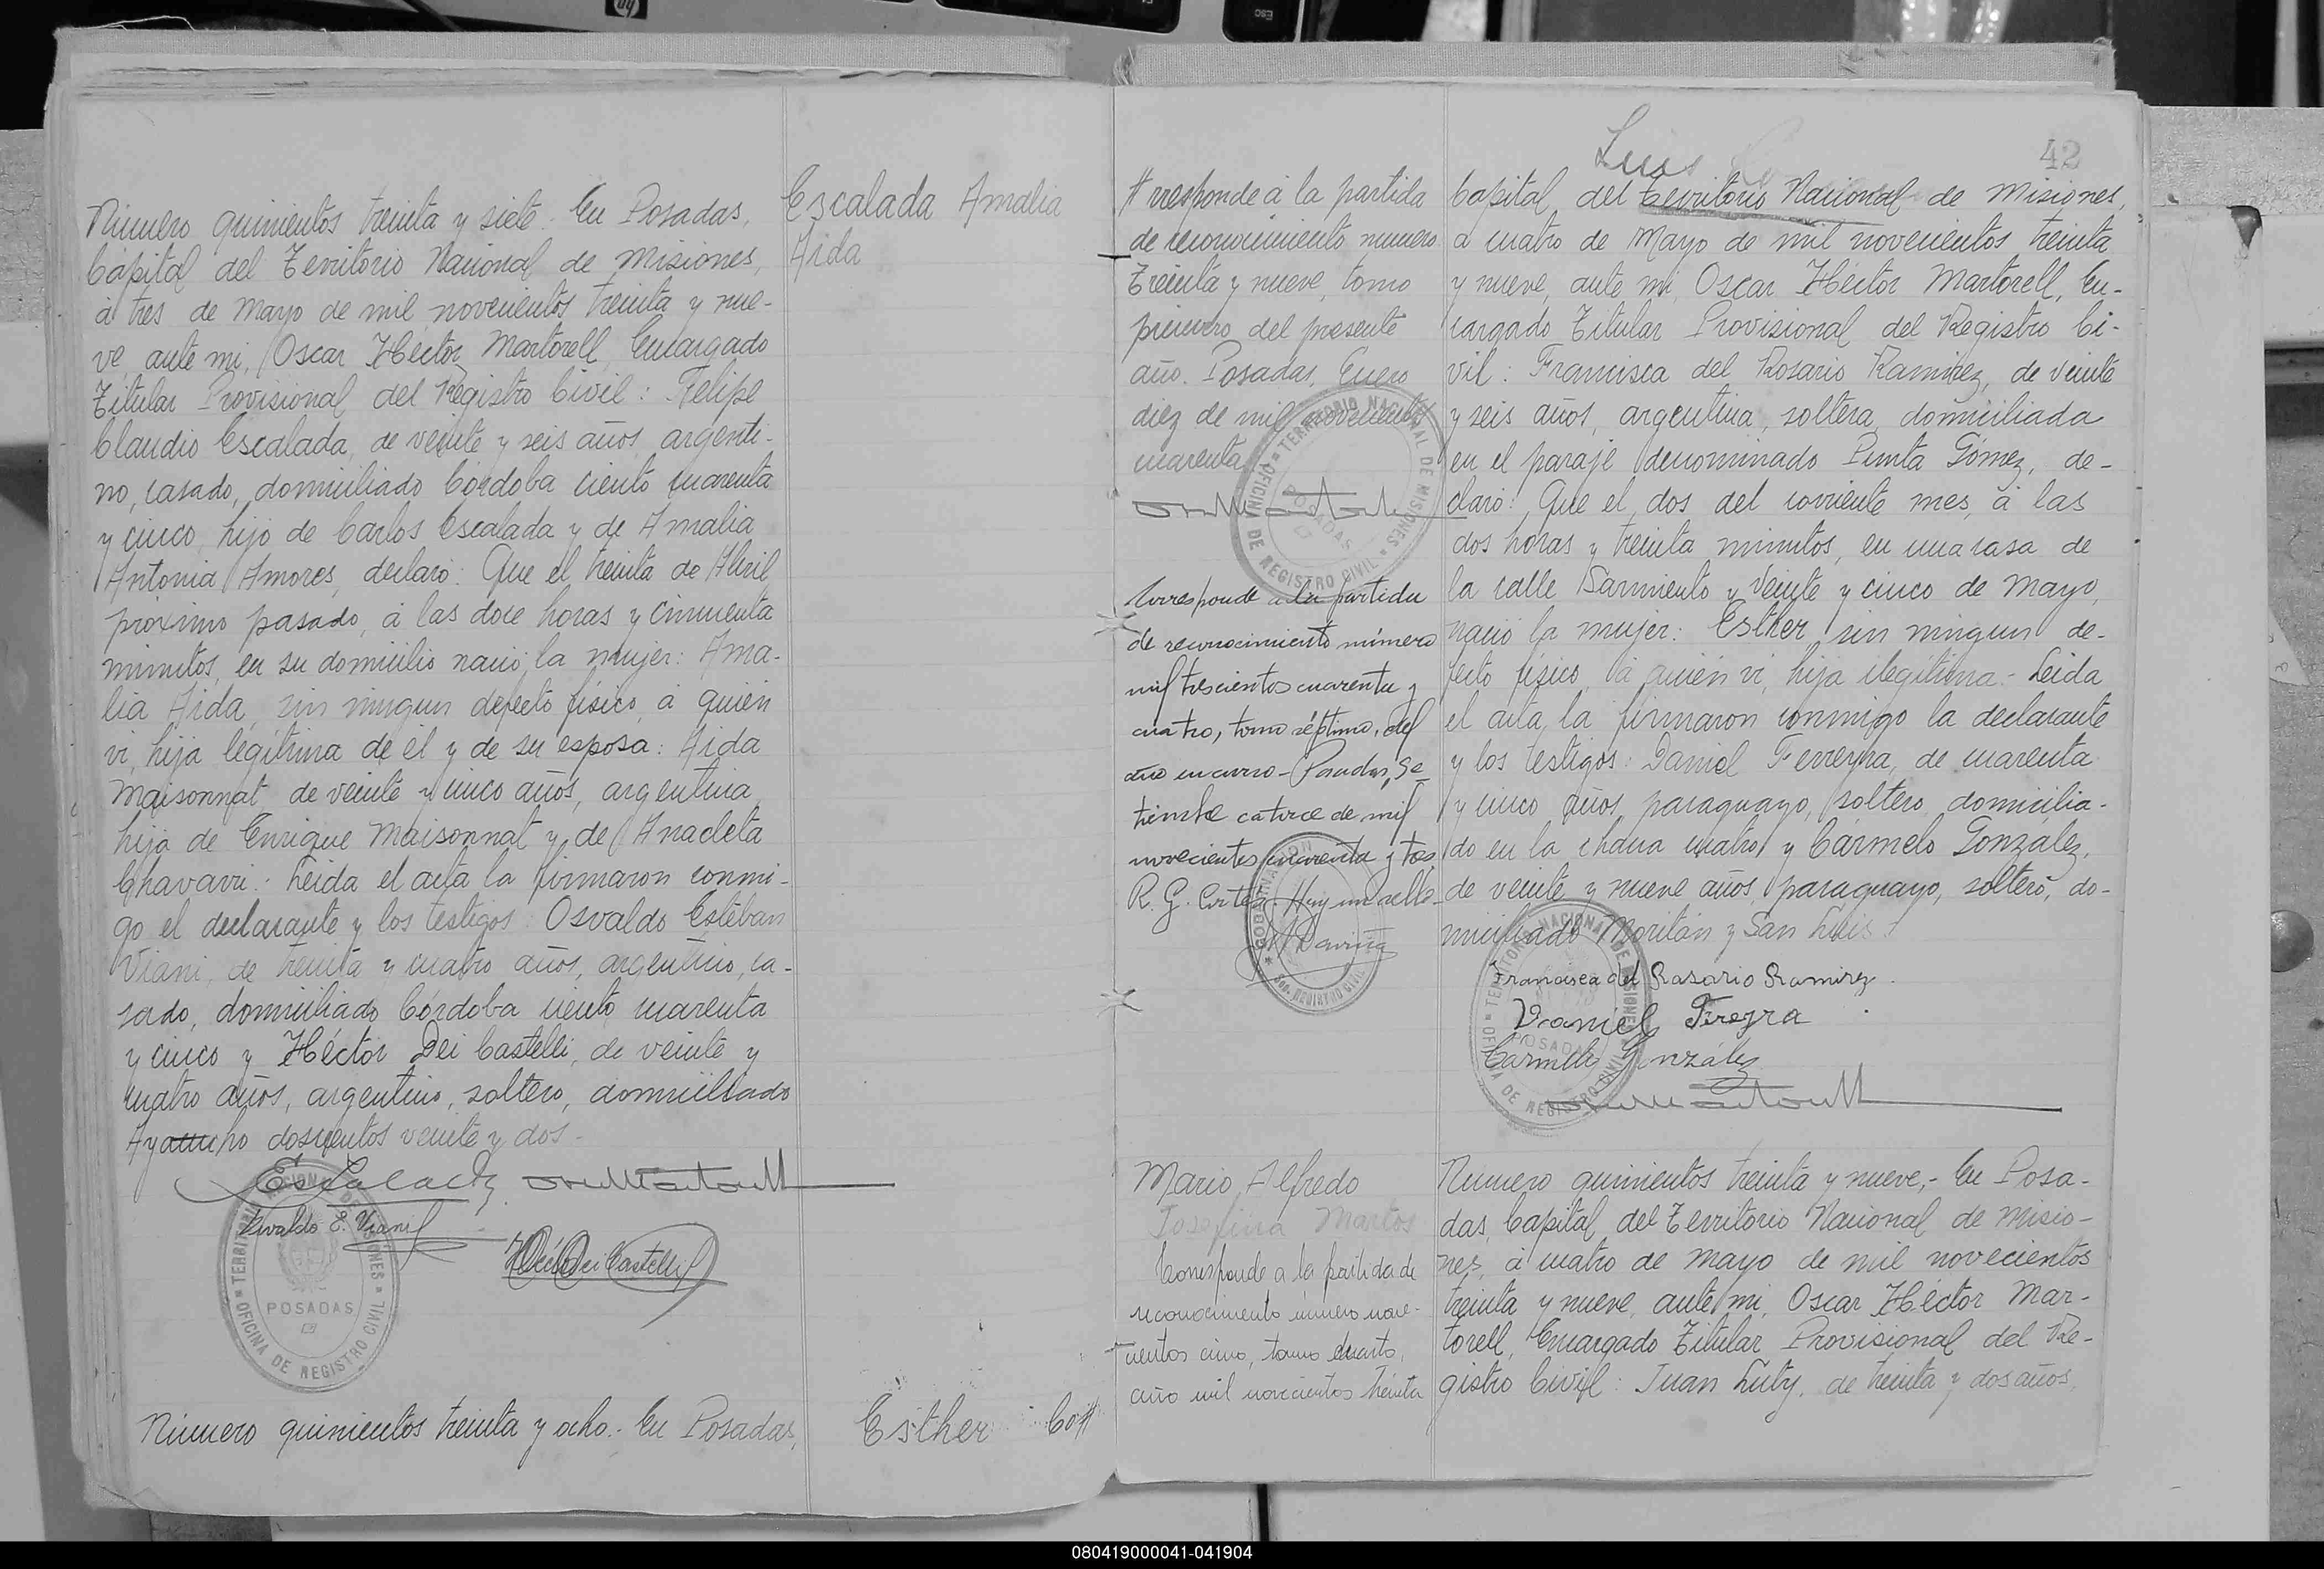 Número quinientos treinta y siete. En Posadas,
Capital del Territorio Nacional de Misiones,
á tres de Mayo de mil novecientos treinta y nue-
ve, ante mi, Oscar Héctor Martorell, Encargado
Titular Provisional del Registro Civil: Felipe
Claudio Escalada, de veinte y seis años, argenti-
no, casado, domiciliado Córdoba ciento cuarenta
y cinco, hijo de Carlos Escalada y de Amalia
Antonia Amores, declaró: Que el treinta de Abril
próximo pasado, á las doce horas y cincuenta
minutos, en su domicilio nació la mujer: Ama-
lia Aida, sin ningun defecto físico, á quién
vi, hija legítima de él y de su esposa: Aida
Maisonnat, de veinte y cinco años, argentina,
hija de Enrique Maisonnat y de Anacleta
Chavarri.- Leida el acta la firmaron conmi-
go el declarante y los testigos: Osvaldo Estéban
Viani, de treinta y cuatro años, argentino, ca-
sado, domiciliado Córdoba ciento cuarenta
y cinco y Héctor Dei Castelli, de veinte y
cuatro años, argentino, soltero, domiciliado
Ayacucho doscientos veinte y dos.-
Escalada
Osvaldo E. Viani
Héctor Dei Castelli
TERRITORIO NACIONAL DE MISIONES
POSADAS
OFICINA DE REGISTRO CIVIL
Número quinientos treinta y ocho.- En Posadas,
Escalada Amalia
Aida
Esther Co#
# rresponde á la partida
de reconocimiento número
Treinta y nueve, tomo
primero del presente
año. Posadas, Enero
diez de mil novecientos
cuarenta
TERRITORIO NACIONAL DE MISIONES
POSADAS
OFICINA DE REGISTRO CIVIL
Corresponde a la partida
de reconocimiento número
mil trescientos cuarenta y
cuatro, tomo séptimo, del
año en curso - Posadas, Se-
tiembre catorce de mil
novecientos cuarenta y tres
R. G. Cortés - Hay un sello
GOBERNACION
REGISTRO CIVIL
Mario Alfredo
Josefina Martos
Corresponde a la partida de
reconocimiento número nove-
cientos cinco, tomo cuarto,
año mil novecientos treinta
Luis
42
Capital del Territorio Nacional de Misiones,
á cuatro de Mayo de mil novecientos treinta
y nueve, ante mi, Oscar Héctor Martorell, En-
cargado Titular Provisional del Registro Ci-
vil: Francisca del Rosario Ramirez, de veinte
y seis años, argentina, soltera, domiciliada
en el paraje denominado Punta Gómez, de-
claró: Que el dos del corriente mes, á las
dos horas y treinta minutos, en una casa de
la calle Sarmiento y Veinte y cinco de Mayo,
nació la mujer: Esther, sin ningun de-
fecto físico, á quién vi, hija ilegítima.- Leida
el acta, la firmaron conmigo la declarante
y los testigos: Daniel Ferreyra, de cuarenta
y cinco años, paraguayo, soltero, domicilia-
do en la chacra cuatro y Cármelo González,
de veinte y nueve años, paraguayo, soltero, do-
miciliado Moritán y San Luis
Francisca del Rosario Ramirez.
Daniel Fireyra
Carmelo González
TERRITORIO NACIONAL DE MISIONES
POSADAS
OFICINA DE REGISTRO CIVIL
Número quinientos treinta y nueve.- En Posa-
das, Capital del Territorio Nacional de Misio-
nes, á cuatro de Mayo de mil novecientos
treinta y nueve, ante mi, Oscar Héctor Mar-
torell, Encargado Titular Provisional del Re-
gistro Civil: Juan Luty, de treinta y dos años,
080419000041-041904